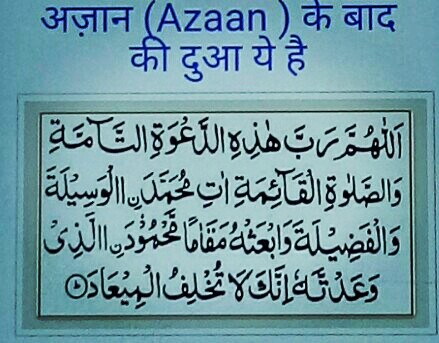 अज़ान (Azaan ) के बाद
की दुआ ये है
اَللّٰهُمَّ رَبَّ هٰذِهِ الدَّعْوَةِ التَّآمَّةِ
وَالصَّلٰوةِ الْقَآئِمَةِ اٰتِ مُحَمَّدَنِ الْوَسِيْلَةَ
وَالْفَضِيْلَةَ وَابْعَثْهُ مَقَامًا مَّحْمُوْدَنِ الَّذِىْ
وَعَدْتَّهٗ اِنَّكَ لَا تُخْلِفُ الْمِيْعَادَ